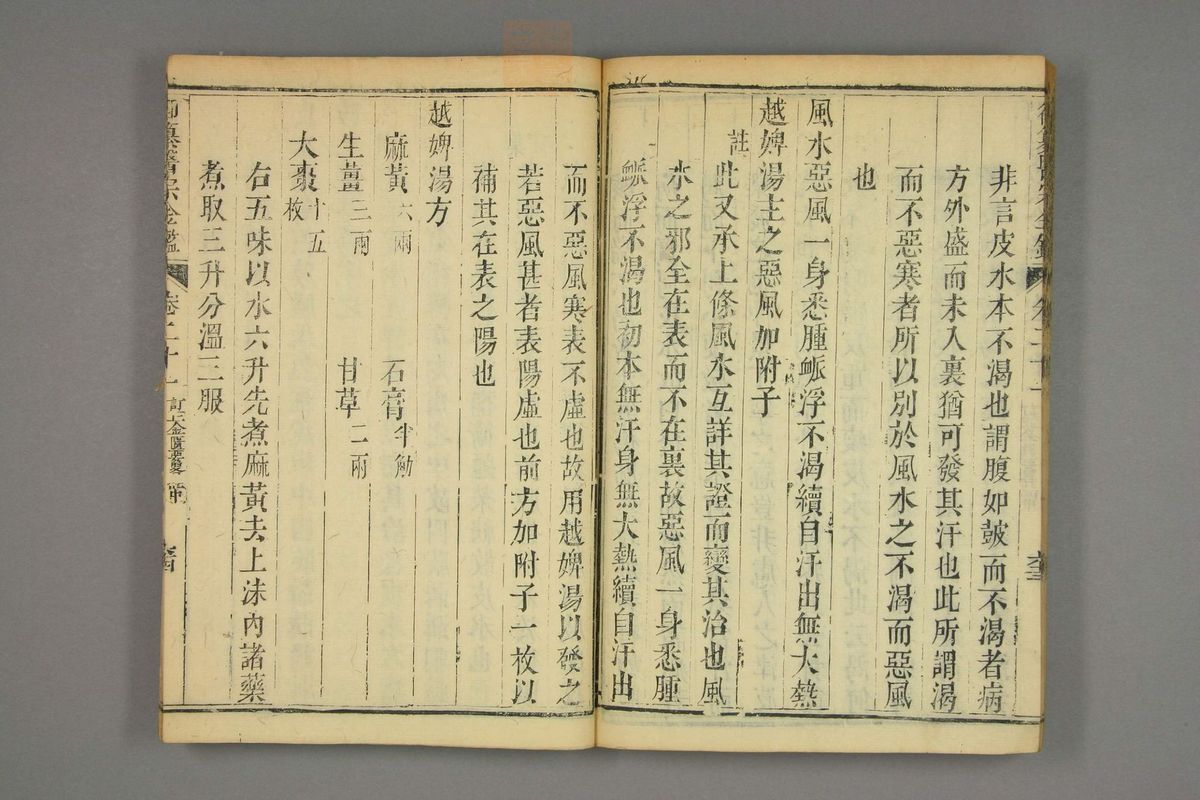 非言皮水本不渴也謂腹如鼓而不渴者病
方外盛而未入裏猶可發其汗也此所謂渴
而不惡寒者所以別於風水之不渴而惡風
也
風水惡風一身悉腫脈浮不渴續自汗出無大熱
越婢湯主之惡風加附子
註
此又承上條風水互詳其證而變其治也風
水之邪全在表而不在裏故惡風一身悉腫
脈浮不渴也初本無汗身無大熱續自汗出
而不惡風寒表不虛也故用越婢湯以發之
若惡風甚者表陽虛也前方加附子一枚以
補其在表之陽也
越婢湯方
麻黃六兩 石膏半觔
生薑三兩 甘草二兩
大棗十五枚
右五味以水六升先煮麻黃去上沫內諸藥
煮取三升分溫三服
御纂醫宗金鑑 卷二十一 訂正金匱要畧